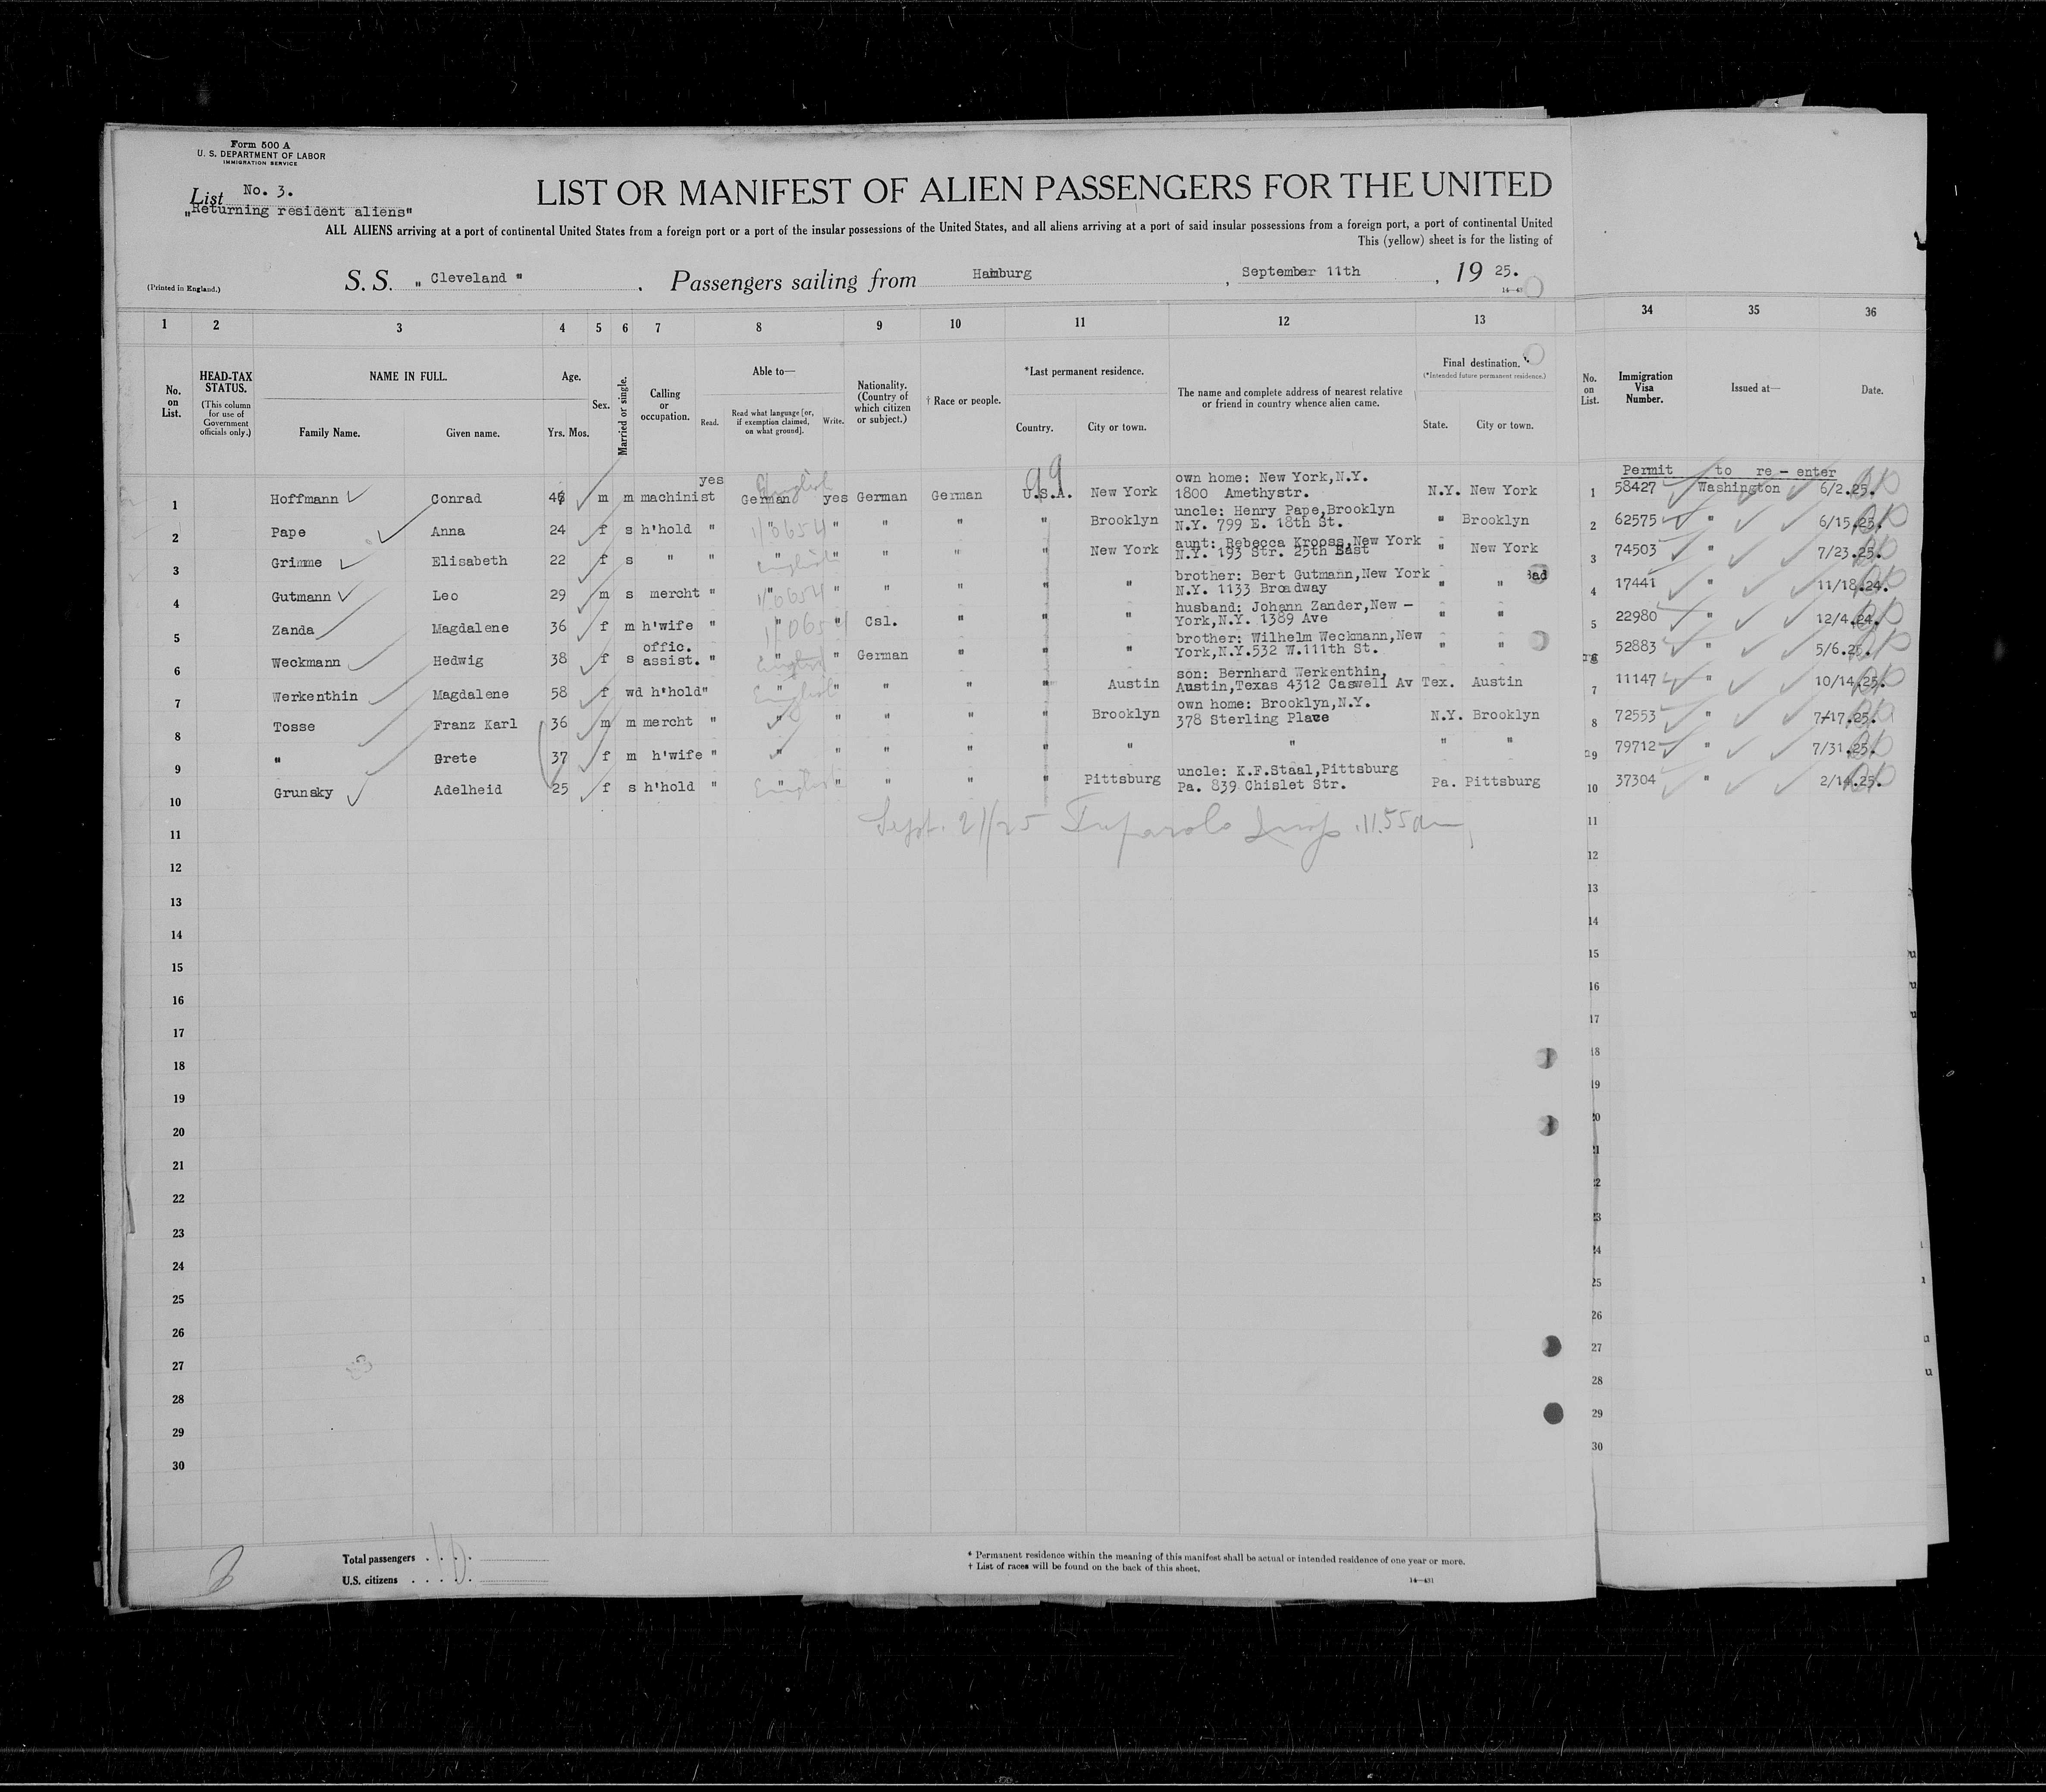 Form 500 A
U. S. DEPARTMENT OF LABOR
IMMIGRATION SERVICE
List No. 3.
„Returning resident aliens"
LIST OR MANIFEST OF ALIEN PASSENGERS FOR THE UNITED
ALL ALIENS arriving at a port of continental United States from a foreign port or a port of the insular possessions of the United States, and all aliens arriving at a port of said insular possessions from a foreign port, a port of continental United
This (yellow) sheet is for the listing of
(Printed in England.)
S. S. „ Cleveland " , Passengers sailing from Hamburg , September 11th , 19 25.
1 2 3 4 5 6 7 8 9 10 11 12 13 34 35 36
No. on List.
HEAD-TAX STATUS.
(This column for use of Government officials only.)
NAME IN FULL.
Family Name. Given name.
Age.
Yrs. Mos.
Sex.
Married or single.
Calling or occupation.
Able to—
Read. Read what language [or, if exemption claimed, on what ground]. Write.
Nationality. (Country of which citizen or subject.)
† Race or people.
*Last permanent residence.
Country. City or town.
The name and complete address of nearest relative or friend in country whence alien came.
Final destination.
(*Intended future permanent residence.)
State. City or town.
No. on List.
Immigration Visa Number.
Issued at—
Date.
Permit to re - enter
99
1 Hoffmann Conrad m m machinist yes German English yes German German U.S.A. New York own home: New York,N.Y. 1800 Amethystr. N.Y. New York 1 58427 Washington 6/2.25.
2 Pape Anna 24 f s h'hold " " " " " " Brooklyn uncle: Henry Pape,Brooklyn N.Y. 799 E. 18th St. " Brooklyn 2 62575 " 6/15.25.
3 Grimme Elisabeth 22 f s " " " English " " " " New York aunt: Rebecca Krooss,New York N.Y. 193 Str. 25th East " New York 3 74503 " 7/23.25.
4 Gutmann Leo 29 m s mercht " " " " " " " brother: Bert Gutmann,New York N.Y. 1133 Broadway " " 4 17441 " 11/18.24.
5 Zanda Magdalene 36 f m h'wife " " " Csl. " " " husband: Johann Zander,New - York,N.Y. 1389 Ave " " 5 22980 " 12/4.24.
6 Weckmann Hedwig 38 f s offic. assist. " " English " German " " " brother: Wilhelm Weckmann,New York,N.Y.532 W.111th St. " " 52883 " 5/6.
7 Werkenthin Magdalene 58 f wd h'hold " " English " " " " Austin son: Bernhard Werkenthin, Austin,Texas 4312 Caswell Av Tex. Austin 7 11147 " 10/14.25.
8 Tosse Franz Karl 36 m m mercht " " " " " " Brooklyn own home: Brooklyn,N.Y. 378 Sterling Place N.Y. Brooklyn 8 72553 " 7/17.25.
9 " Grete 37 f m h'wife " " " " " " " " " " 9 79712 " 7/31.25.
10 Grunsky Adelheid 25 f s h'hold " " English " " " " Pittsburg uncle: K.F.Staal,Pittsburg Pa. 839 Chislet Str. Pa. Pittsburg 10 37304 " 2/14.25.
Sept. 21/25 Insp. 11.55 am
11 11
12 12
13 13
14 14
15 15
16 16
17 17
18 18
19 19
20 20
21 21
22 22
23 23
24 24
25 25
26 26
27 27
28 28
29 29
30 30
Total passengers . . . . 10
U.S. citizens . . . .
* Permanent residence within the meaning of this manifest shall be actual or intended residence of one year or more.
† List of races will be found on the back of this sheet.
14—431